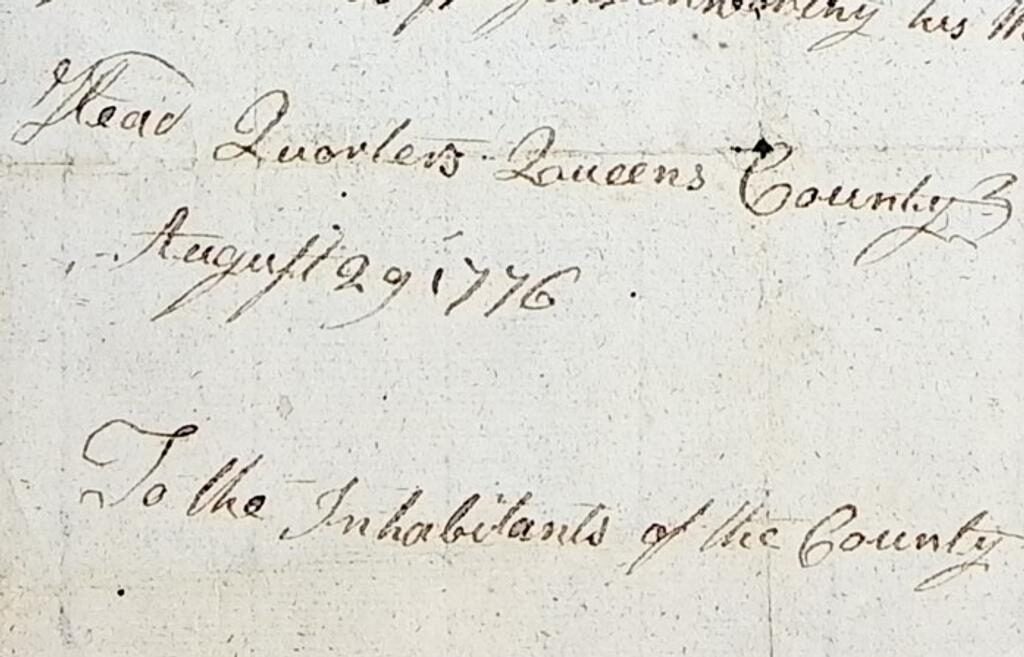 his
Head Quarters Queens County
August 29 1776
To the Inhabitants of the County